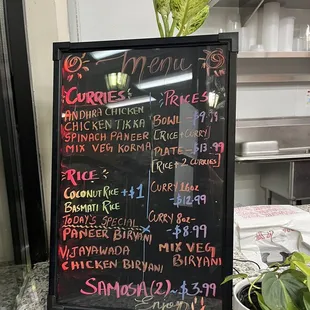 Menu
CURRIES
ANDHRA CHICKEN
CHICKEN TIKKA
SPINACH PANEER
MIX VEG KORMA
RICE
COCONUT RICE +$1
BASMATI RICE
TODAY'S SPECIAL
PANEER BIRYANI
VIJAYAWADA
CHICKEN BIRYANI
PRICES
BOWL - $9.99
[RICE + CURRY]
PLATE - $13.99
[RICE + 2 CURRIES]
CURRY 16oz
- $12.99
CURRY 8oz -
- $8.99
MIX VEG
BIRYANI
SAMOSA (2) - $3.99
Enjoy